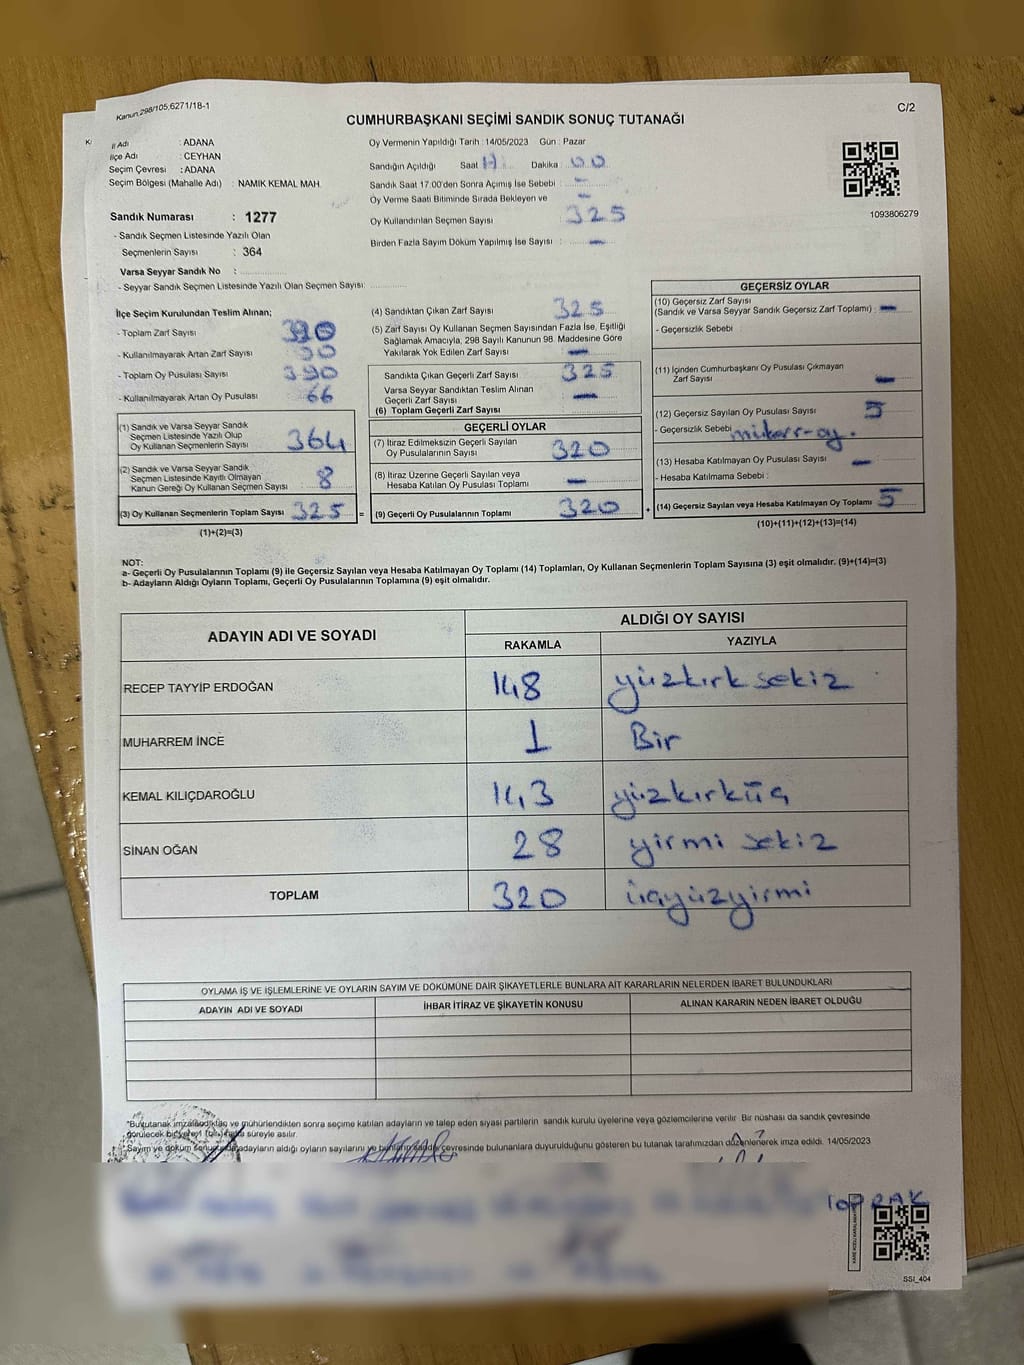 Kanun.298/105,6271/18-1
C/2
CUMHURBAŞKANI SEÇİMİ SANDIK SONUÇ TUTANAĞI
İl Adı : ADANA
İlçe Adı : CEYHAN
Seçim Çevresi : ADANA
Seçim Bölgesi (Mahalle Adı) : NAMIK KEMAL MAH.
Sandık Numarası : 1277
- Sandık Seçmen Listesinde Yazılı Olan
Seçmenlerin Sayısı : 364
Varsa Seyyar Sandık No :
- Seyyar Sandık Seçmen Listesinde Yazılı Olan Seçmen Sayısı:
Oy Vermenin Yapıldığı Tarih : 14/05/2023 Gün : Pazar
Sandığın Açıldığı Saat Dakika : 00
Sandık Saat 17.00'den Sonra Açımış İse Sebebi : -
Oy Verme Saati Bitiminde Sırada Bekleyen ve -
Oy Kullandırılan Seçmen Sayısı : 325
Birden Fazla Sayım Döküm Yapılmış İse Sayısı : -
1093806279
İlçe Seçim Kurulundan Teslim Alınan;
- Toplam Zarf Sayısı 390
- Kullanılmayarak Artan Zarf Sayısı
- Toplam Oy Pusulası Sayısı 390
- Kullanılmayarak Artan Oy Pusulası 66
(1) Sandık ve Varsa Seyyar Sandık
Seçmen Listesinde Yazılı Olup
Oy Kullanan Seçmenlerin Sayısı 364
(2) Sandık ve Varsa Seyyar Sandık
Seçmen Listesinde Kayıtlı Olmayan
Kanun Gereği Oy Kullanan Seçmen Sayısı 8
(3) Oy Kullanan Seçmenlerin Toplam Sayısı 325 =
(1)+(2)=(3)
(4) Sandıktan Çıkan Zarf Sayısı 325
(5) Zarf Sayısı Oy Kullanan Seçmen Sayısından Fazla İse, Eşitliği
Sağlamak Amacıyla, 298 Sayılı Kanunun 98. Maddesine Göre
Yakılarak Yok Edilen Zarf Sayısı -
Sandıkta Çıkan Geçerli Zarf Sayısı 325
Varsa Seyyar Sandıktan Teslim Alınan
Geçerli Zarf Sayısı -
(6) Toplam Geçerli Zarf Sayısı
GEÇERLİ OYLAR
(7) İtiraz Edilmeksizin Geçerli Sayılan
Oy Pusulalarının Sayısı 320
(8) İtiraz Üzerine Geçerli Sayılan veya
Hesaba Katılan Oy Pusulası Toplamı -
(9) Geçerli Oy Pusulalarının Toplamı 320 +
GEÇERSİZ OYLAR
(10) Geçersiz Zarf Sayısı
(Sandık ve Varsa Seyyar Sandık Geçersiz Zarf Toplamı) : -
- Geçersizlik Sebebi
(11) İçinden Cumhurbaşkanı Oy Pusulası Çıkmayan
Zarf Sayısı -
(12) Geçersiz Sayılan Oy Pusulası Sayısı 5
- Geçersizlik Sebebi mükerr-oy.
(13) Hesaba Katılmayan Oy Pusulası Sayısı -
- Hesaba Katılmama Sebebi :
(14) Geçersiz Sayılan veya Hesaba Katılmayan Oy Toplamı 5
(10)+(11)+(12)+(13)=(14)
NOT:
a- Geçerli Oy Pusulalarının Toplamı (9) ile Geçersiz Sayılan veya Hesaba Katılmayan Oy Toplamı (14) Toplamları, Oy Kullanan Seçmenlerin Toplam Sayısına (3) eşit olmalıdır. (9)+(14)=(3)
b- Adayların Aldığı Oyların Toplamı, Geçerli Oy Pusulalarının Toplamına (9) eşit olmalıdır.
ADAYIN ADI VE SOYADI ALDIĞI OY SAYISI
RAKAMLA YAZIYLA
RECEP TAYYİP ERDOĞAN 148 yüzkırk sekiz
MUHARREM İNCE 1 Bir
KEMAL KILIÇDAROĞLU 143 yüzkırküç
SİNAN OĞAN 28 yirmi sekiz
TOPLAM 320 üçyüzyirmi
OYLAMA İŞ VE İŞLEMLERİNE VE OYLARIN SAYIM VE DÖKÜMÜNE DAİR ŞİKAYETLERLE BUNLARA AİT KARARLARIN NELERDEN İBARET BULUNDUKLARI
ADAYIN ADI VE SOYADI İHBAR İTİRAZ VE ŞİKAYETİN KONUSU ALINAN KARARIN NEDEN İBARET OLDUĞU
sonra seçime katılan adayların ve talep eden siyasi partilerin sandık kurulu üyelerine veya gözlemcilerine verilir. Bir nüshası da sandık çevresinde
süreyle asılır.
Sayım ve döküm adayların aldığı oyların sayılarını çevresinde bulunanlara duyurulduğunu gösteren bu tutanak tarafımızdan düzenlenerek imza edildi. 14/05/2023
TOPRAK
SSI_404